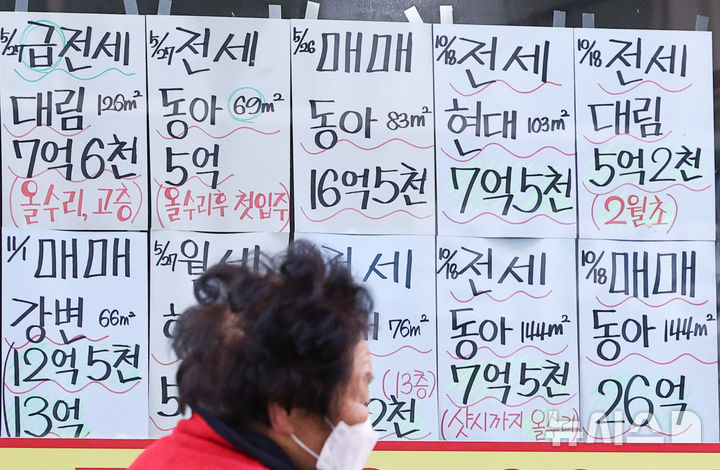 5/27 급전세
대림 126m²
7억6천
(올수리, 고층)
5/27 전세
동아 69m²
5억
(올수리후 첫입주
5/26 매매
동아 83m²
16억5천
10/18 전세
현대 103m²
7억5천
10/18 전세
대림
5억2천
(2월초)
11/1 매매
강변 66m²
(12억5천
13억
5/27 월세
전세
76m²
(13층)
2천
10/18 전세
동아 144m²
7억5천
(샷시까지 올수리
10/18 매매
동아 144m²
26억
뉴시스